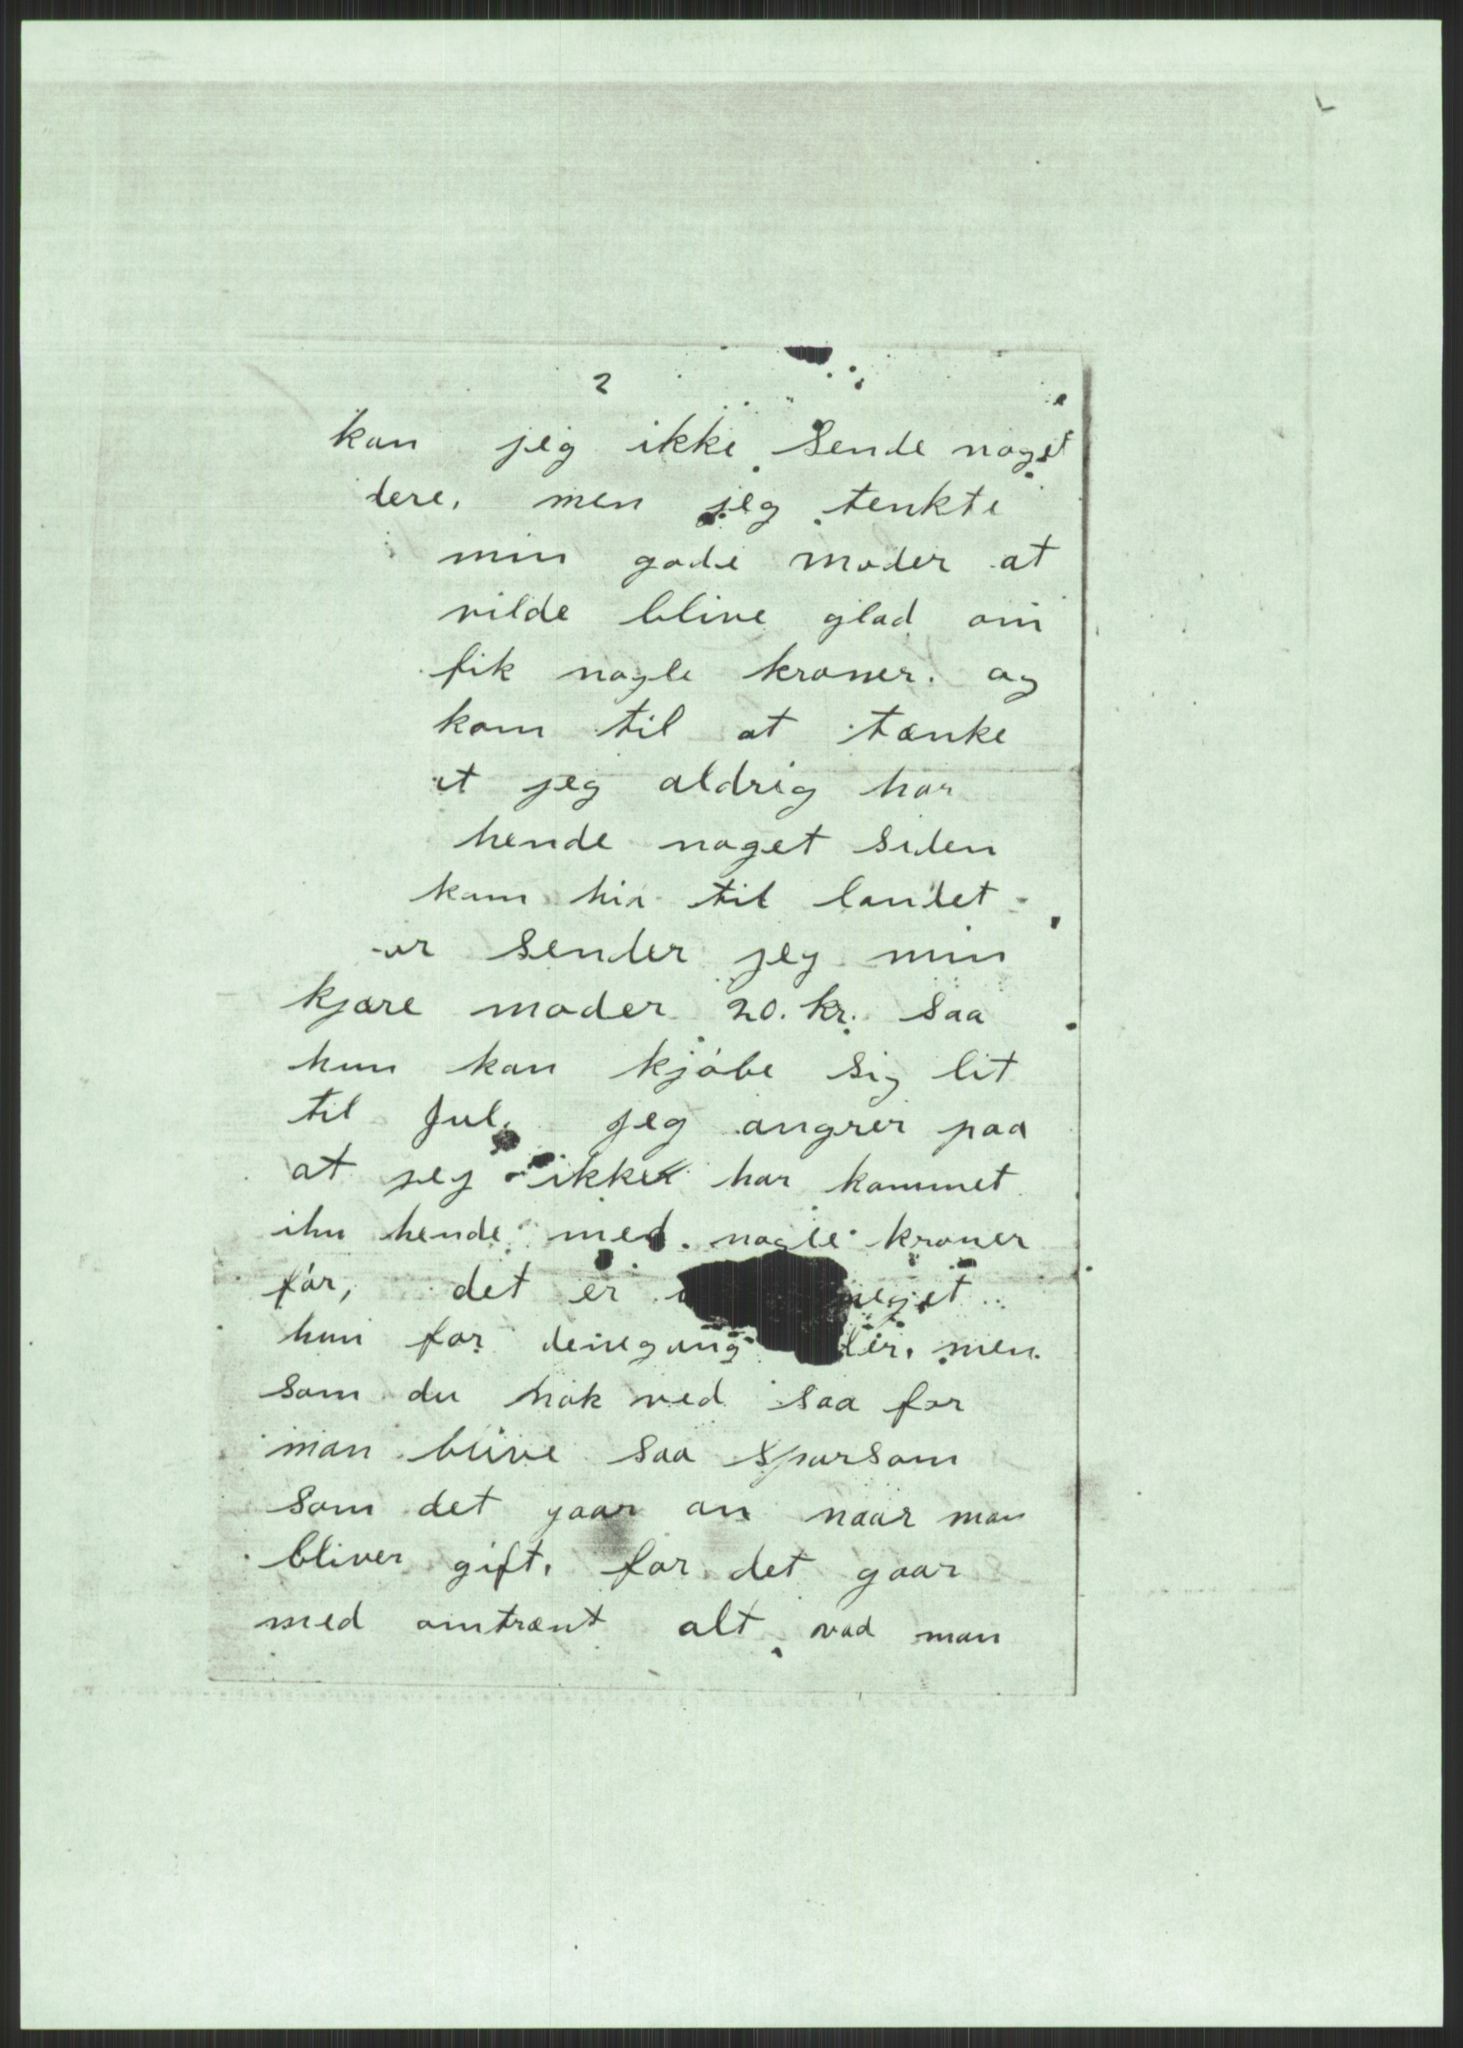 2
kan jeg ikke sende noget
dere. men jeg tenkte
min gode moder at
vilde blive glad om
fik nogle kroner. og
kom til at tænke
at jeg aldrig har
hende noget siden
kom hir til landet
sender jeg min
kjære moder 20. kr. saa
hun kan kjøbe sig lit
til Jul. jeg angrer paa
at jeg ikke har kommet
ihu hende med nogle kroner
før, det er meget
hun for denegang men
som du nok ved saa for
man blive saa sparsom
som det gaar an naar man
bliver gift. for det gaar
med omtrænt alt vad man